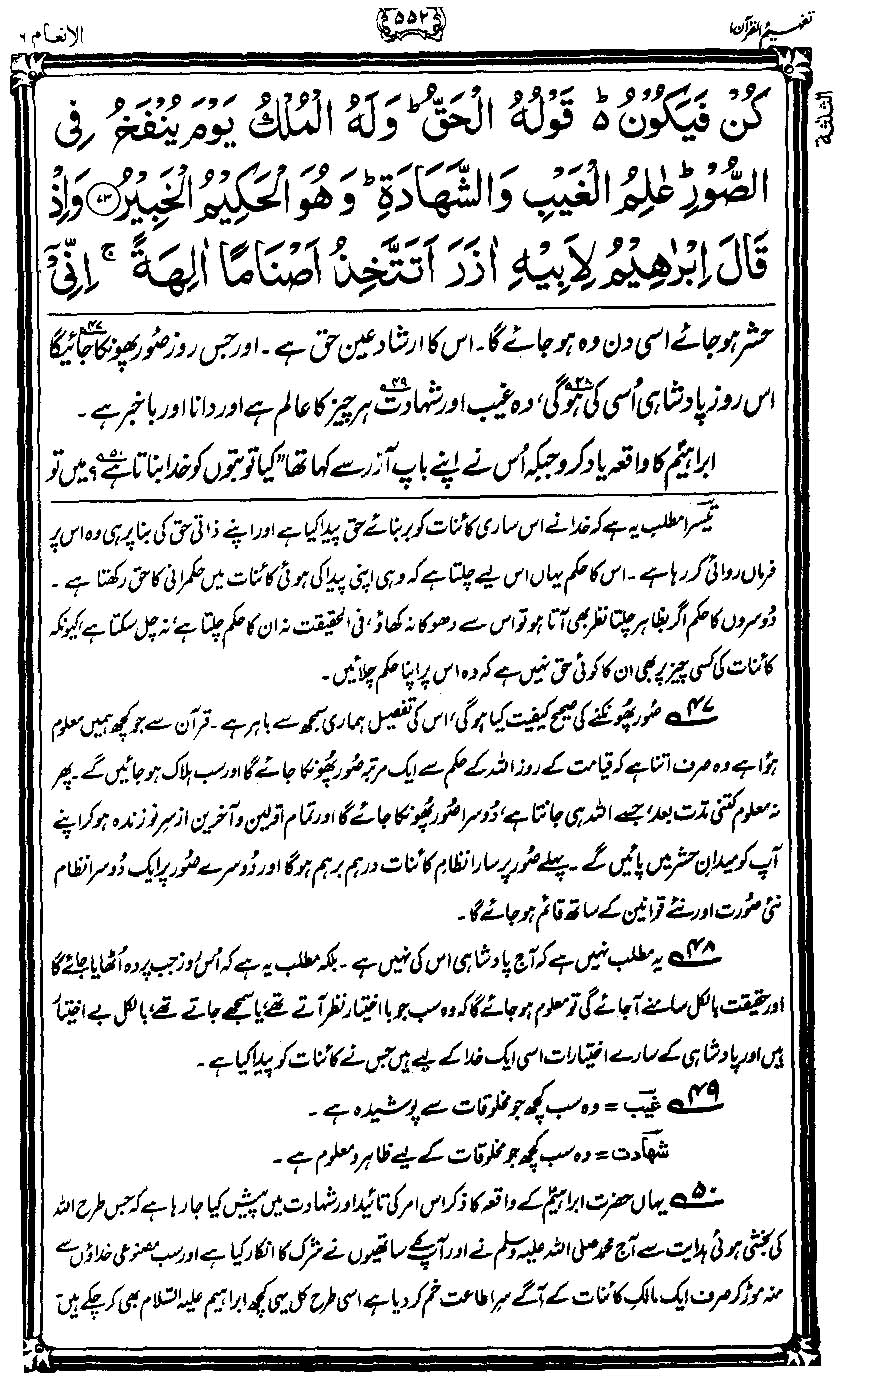 تفہیم القرآن ۱
۵۵۲
الانعام ۶
الثلثة
كُنْ فَيَكُوْنُ ؕ قَوْلُهُ الْحَقُّ ؕ وَلَهُ الْمُلْكُ يَوْمَ يُنْفَخُ فِي
الصُّوْرِ ؕ عٰلِمُ الْغَيْبِ وَالشَّهَادَةِ ؕ وَهُوَ الْحَكِيْمُ الْخَبِيْرُ ﴿۷۳﴾ وَاِذْ
قَالَ اِبْرٰهِيْمُ لِاَبِيْهِ اٰزَرَ اَتَتَّخِذُ اَصْنَامًا اٰلِهَةً ۚ اِنِّيْۤ
حشر ہو جائے اسی دن وہ ہو جائے گا۔ اس کا ارشاد عین حق ہے۔ اور جس روز صُور پھونکا جائیگا ۴۷
اس روز پادشاہی اُسی کی ہوگی ۴۸، وہ غیب اور شہادت ۴۹ ہر چیز کا عالم ہے اور دانا اور باخبر ہے۔
ابراہیمؑ کا واقعہ یاد کرو جبکہ اُس نے اپنے باپ آزر سے کہا تھا "کیا تو بتوں کو خدا بناتا ہے ۵۰؟ میں تو
تیسرا مطلب یہ ہے کہ خدا نے اس ساری کائنات کو بربنائے حق پیدا کیا ہے اور اپنے ذاتی حق کی بنا پر ہی وہ اس پر
فرماں روائی کر رہا ہے۔ اس کا حکم یہاں اس لیے چلتا ہے کہ وہی اپنی پیدا کی ہوئی کائنات میں حکمرانی کا حق رکھتا ہے۔
دُوسروں کا حکم اگر بظاہر چلتا نظر بھی آتا ہو تو اس سے دھوکا نہ کھاؤ، فی الحقیقت نہ ان کا حکم چلتا ہے، نہ چل سکتا ہے، کیونکہ
کائنات کی کسی چیز پر بھی ان کا کوئی حق نہیں ہے کہ وہ اس پر اپنا حکم چلائیں۔
۴۷ صُور پھُونکنے کی صحیح کیفیت کیا ہوگی، اس کی تفصیل ہماری سمجھ سے باہر ہے۔ قرآن سے جو کچھ ہمیں معلوم
ہوا ہے وہ صرف اتنا ہے کہ قیامت کے روز اللہ کے حکم سے ایک مرتبہ صُور پھُونکا جائے گا اور سب ہلاک ہو جائیں گے۔ پھر
نہ معلوم کتنی مدت بعد، جسے اللہ ہی جانتا ہے، دُوسرا صُور پھُونکا جائے گا اور تمام اوّلین و آخرین از سرِ نو زندہ ہو کر اپنے
آپ کو میدانِ حشر میں پائیں گے۔ پہلے صُور پر سارا نظامِ کائنات درہم برہم ہوگا اور دُوسرے صُور پر ایک دُوسرا نظام
نئی صُورت اور نئے قوانین کے ساتھ قائم ہو جائے گا۔
۴۸ یہ مطلب نہیں ہے کہ آج پادشاہی اس کی نہیں ہے۔ بلکہ مطلب یہ ہے کہ اُس روز جب پردہ اُٹھایا جائے گا
اور حقیقت بالکل سامنے آجائے گی تو معلوم ہو جائے گا کہ وہ سب جو با اختیار نظر آتے تھے، یا سمجھے جاتے تھے، بالکل بے اختیار
ہیں اور پادشاہی کے سارے اختیارات اسی ایک خدا کے لیے ہیں جس نے کائنات کو پیدا کیا ہے۔
۴۹ غیب = وہ سب کچھ جو مخلوقات سے پوشیدہ ہے۔
شہادت = وہ سب کچھ جو مخلوقات کے لیے ظاہر و معلوم ہے۔
۵۰ یہاں حضرت ابراہیمؑ کے واقعہ کا ذکر اس امر کی تائید اور شہادت میں پیش کیا جا رہا ہے کہ جس طرح اللہ
کی بخشی ہوئی ہدایت سے آج محمد صلی اللہ علیہ وسلم نے اور آپؐ کے ساتھیوں نے شرک کا انکار کیا ہے اور سب مصنوعی خداؤں سے
منہ موڑ کر صرف ایک مالکِ کائنات کے آگے سرِ اطاعت خم کر دیا ہے اسی طرح کل یہی کچھ ابراہیم علیہ السلام بھی کر چکے ہیں